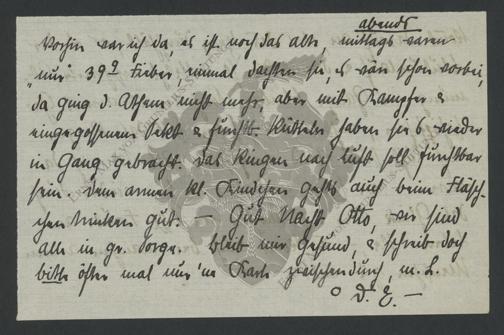 abends
Vorhin war ich da, es ist noch das alte, mittags waren
"nur" 39⁹ Fieber, einmal dachten sie, es wär schon vorbei,
da ging d. Athem nicht mehr, aber mit Kampfer &
eingegossenem Sekt & furchtb. Rütteln haben sie's wieder
in Gang gebracht. Das Ringen nach Luft soll furchtbar
sein. Dem armen kl. Kindchen gehts auch beim Fläsch-
chen trinken gut. — Gut Nacht Otto, wir sind
alle in gr. Sorge. Bleib mir gesund, & schreib doch
bitte öfter mal nur 'ne Karte zwischendurch, m. L.
D. E. —